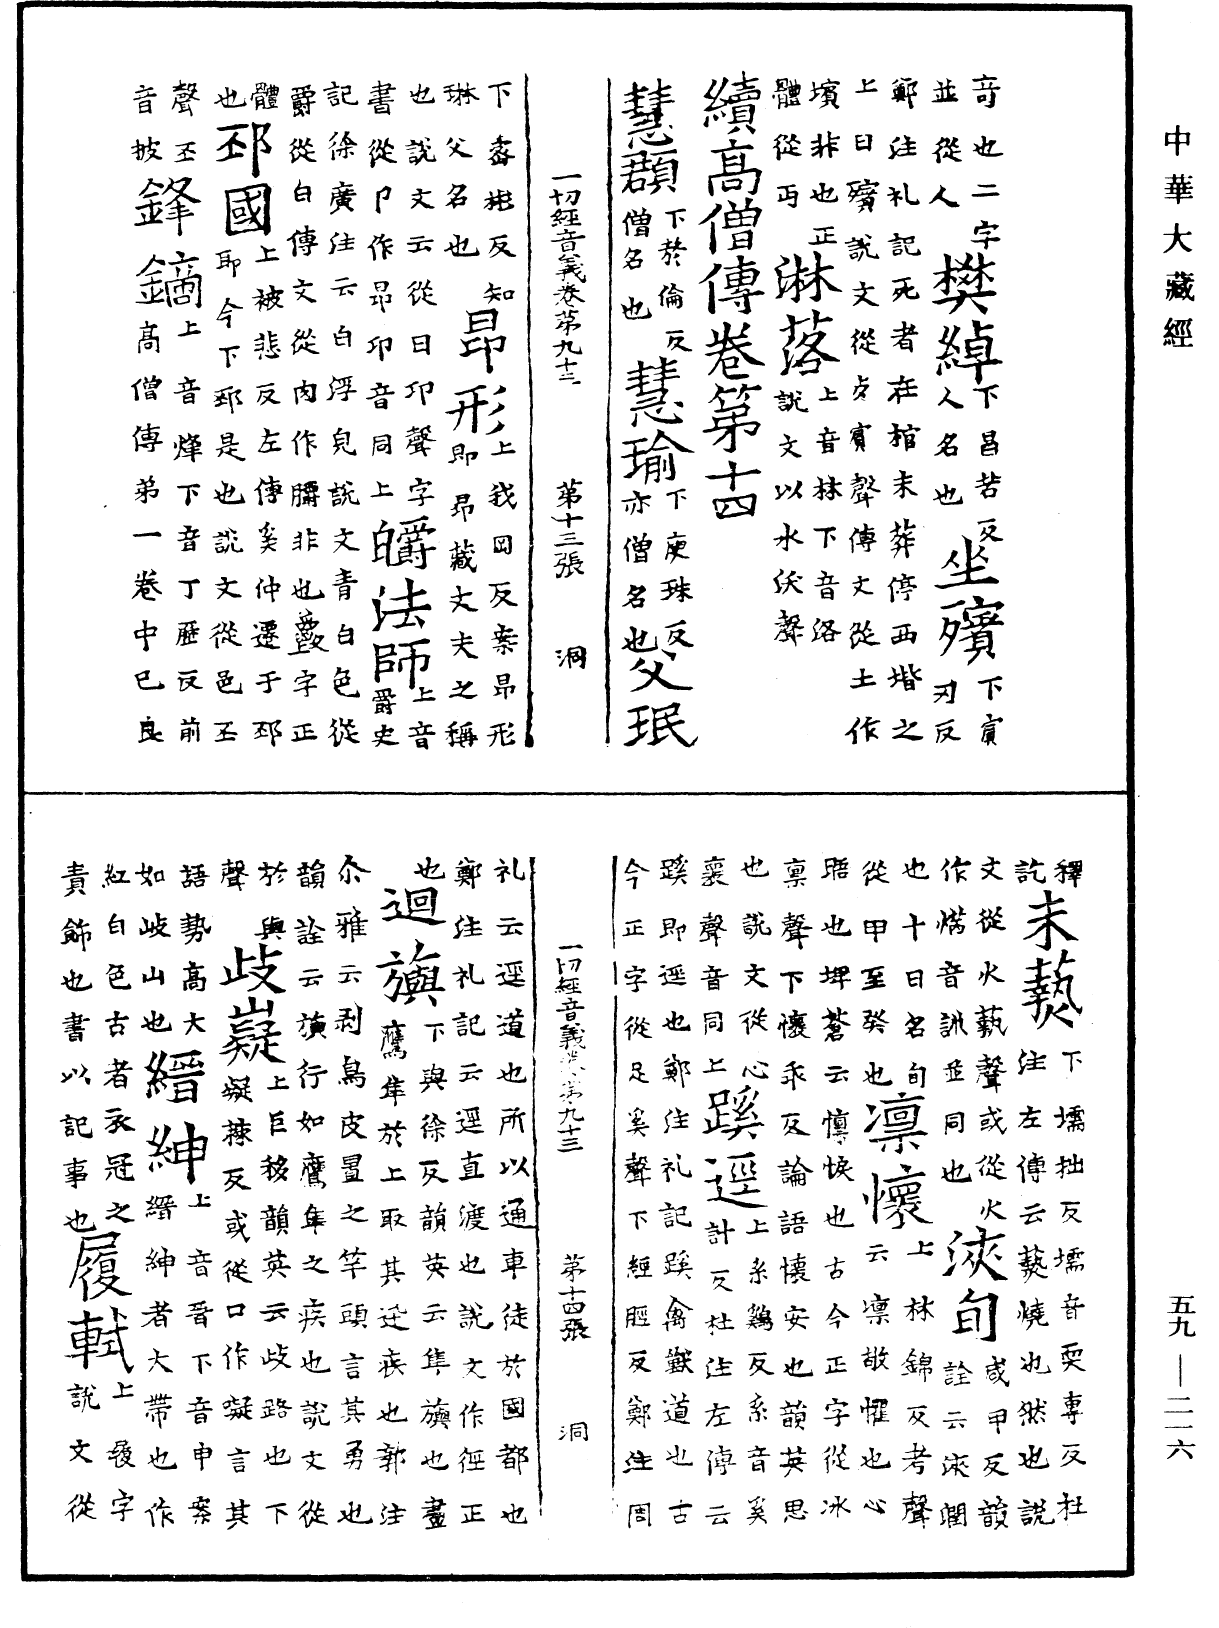 中華大藏經
奇也二字
並從人
樊綽下昌若反
人名也
坐殯下賓刃反
鄭注礼記死者在棺未葬停西堦之
上曰殯說文從歺賓聲傳文從土作
壙非也正
體從歹
淋落上音林下音洛
說文以水沃聲
續高僧傳卷第十四
慧頵下於倫反
僧名也
慧瑜下庾珠反
亦僧名也
父珉
一切經音義卷第九十三 第十三張 洞
下 彬反知
琳父名也
昂形上我岡反案昂形
即昂藏丈夫之稱
也說文云從日卬聲字
書從卩作昂卬音同上
皭法師上音
爵史
記徐廣注云白浮皃說文青白色從
爵從白傳文從肉作臞非也 字正
體
也
邳國上被悲反左傳奚仲遷于邳
耶今下邳是也說文從邑丕
聲丕
音披
鋒鏑上音烽下音丁歷反前
高僧傳第一卷中已
釋
訖
未爇下堧拙反堧音耎專反杜
注左傳云爇燒也然也說
文從火蓺聲或從火
作焫音訓並同也
浹旬咸甲反韻
詮云浹潤
也十日名旬
從甲至癸也
凜懷上林錦反考聲
云凜敬懼也心
踖也埤蒼云懍悷也古今正字從冰
稟聲下懷乖反論語懷安也韻英思
也說文從心
褱聲音同上
蹊逕上系鷄反系音奚
計反杜注左傳云
蹊即逕也鄭注礼記蹊禽獸道也古
今正字從足奚聲下經脛反鄭注周
一切經音義卷第九十三 第十四張 洞
礼云逕道也所以通車徒於國都也
鄭注礼記云逕直渡也說文作徑正
也
迴旟下與徐反韻英云隼旟也畫
鷹隼於上取其迅疾也郭注
尒雅云剥鳥皮置之竿頭言其勇也
韻詮云旟行如鷹隼之疾也說文從
㫃與
聲
歧嶷上巨移韻英云歧路也下
凝棘反或從口作㘈言其
語勢高大
如岐山也
縉紳上音晉下音申案
縉紳者大帶也作
紅白色古者衣冠之
責飾也書以記事也
履軾上 字
說文從
五九—二一六